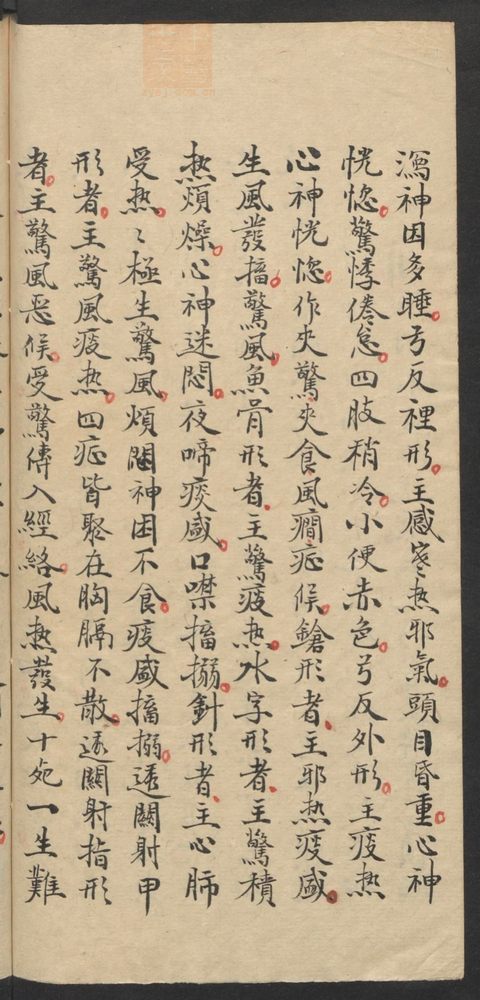 瀉神因多睡弓反裡形主感寒热邪氣頭目昏重心神
恍惚驚悸倦怠四肢稍冷小便赤色弓反外形主痰热
心神恍惚作夾驚夾食風癇症候鎗形者主邪热痰盛
生風發搐驚風魚骨形者主驚痰热水字形者主驚積
热煩燥心神迷悶夜啼痰盛口噤搐搦針形者主心肺
受热〻極生驚風煩悶神困不食痰盛搐搦透關射甲
形者主驚風痰热四症皆聚在胸膈不散透關射指形
者主驚風恶候受驚傳入經絡風热發生十死一生難